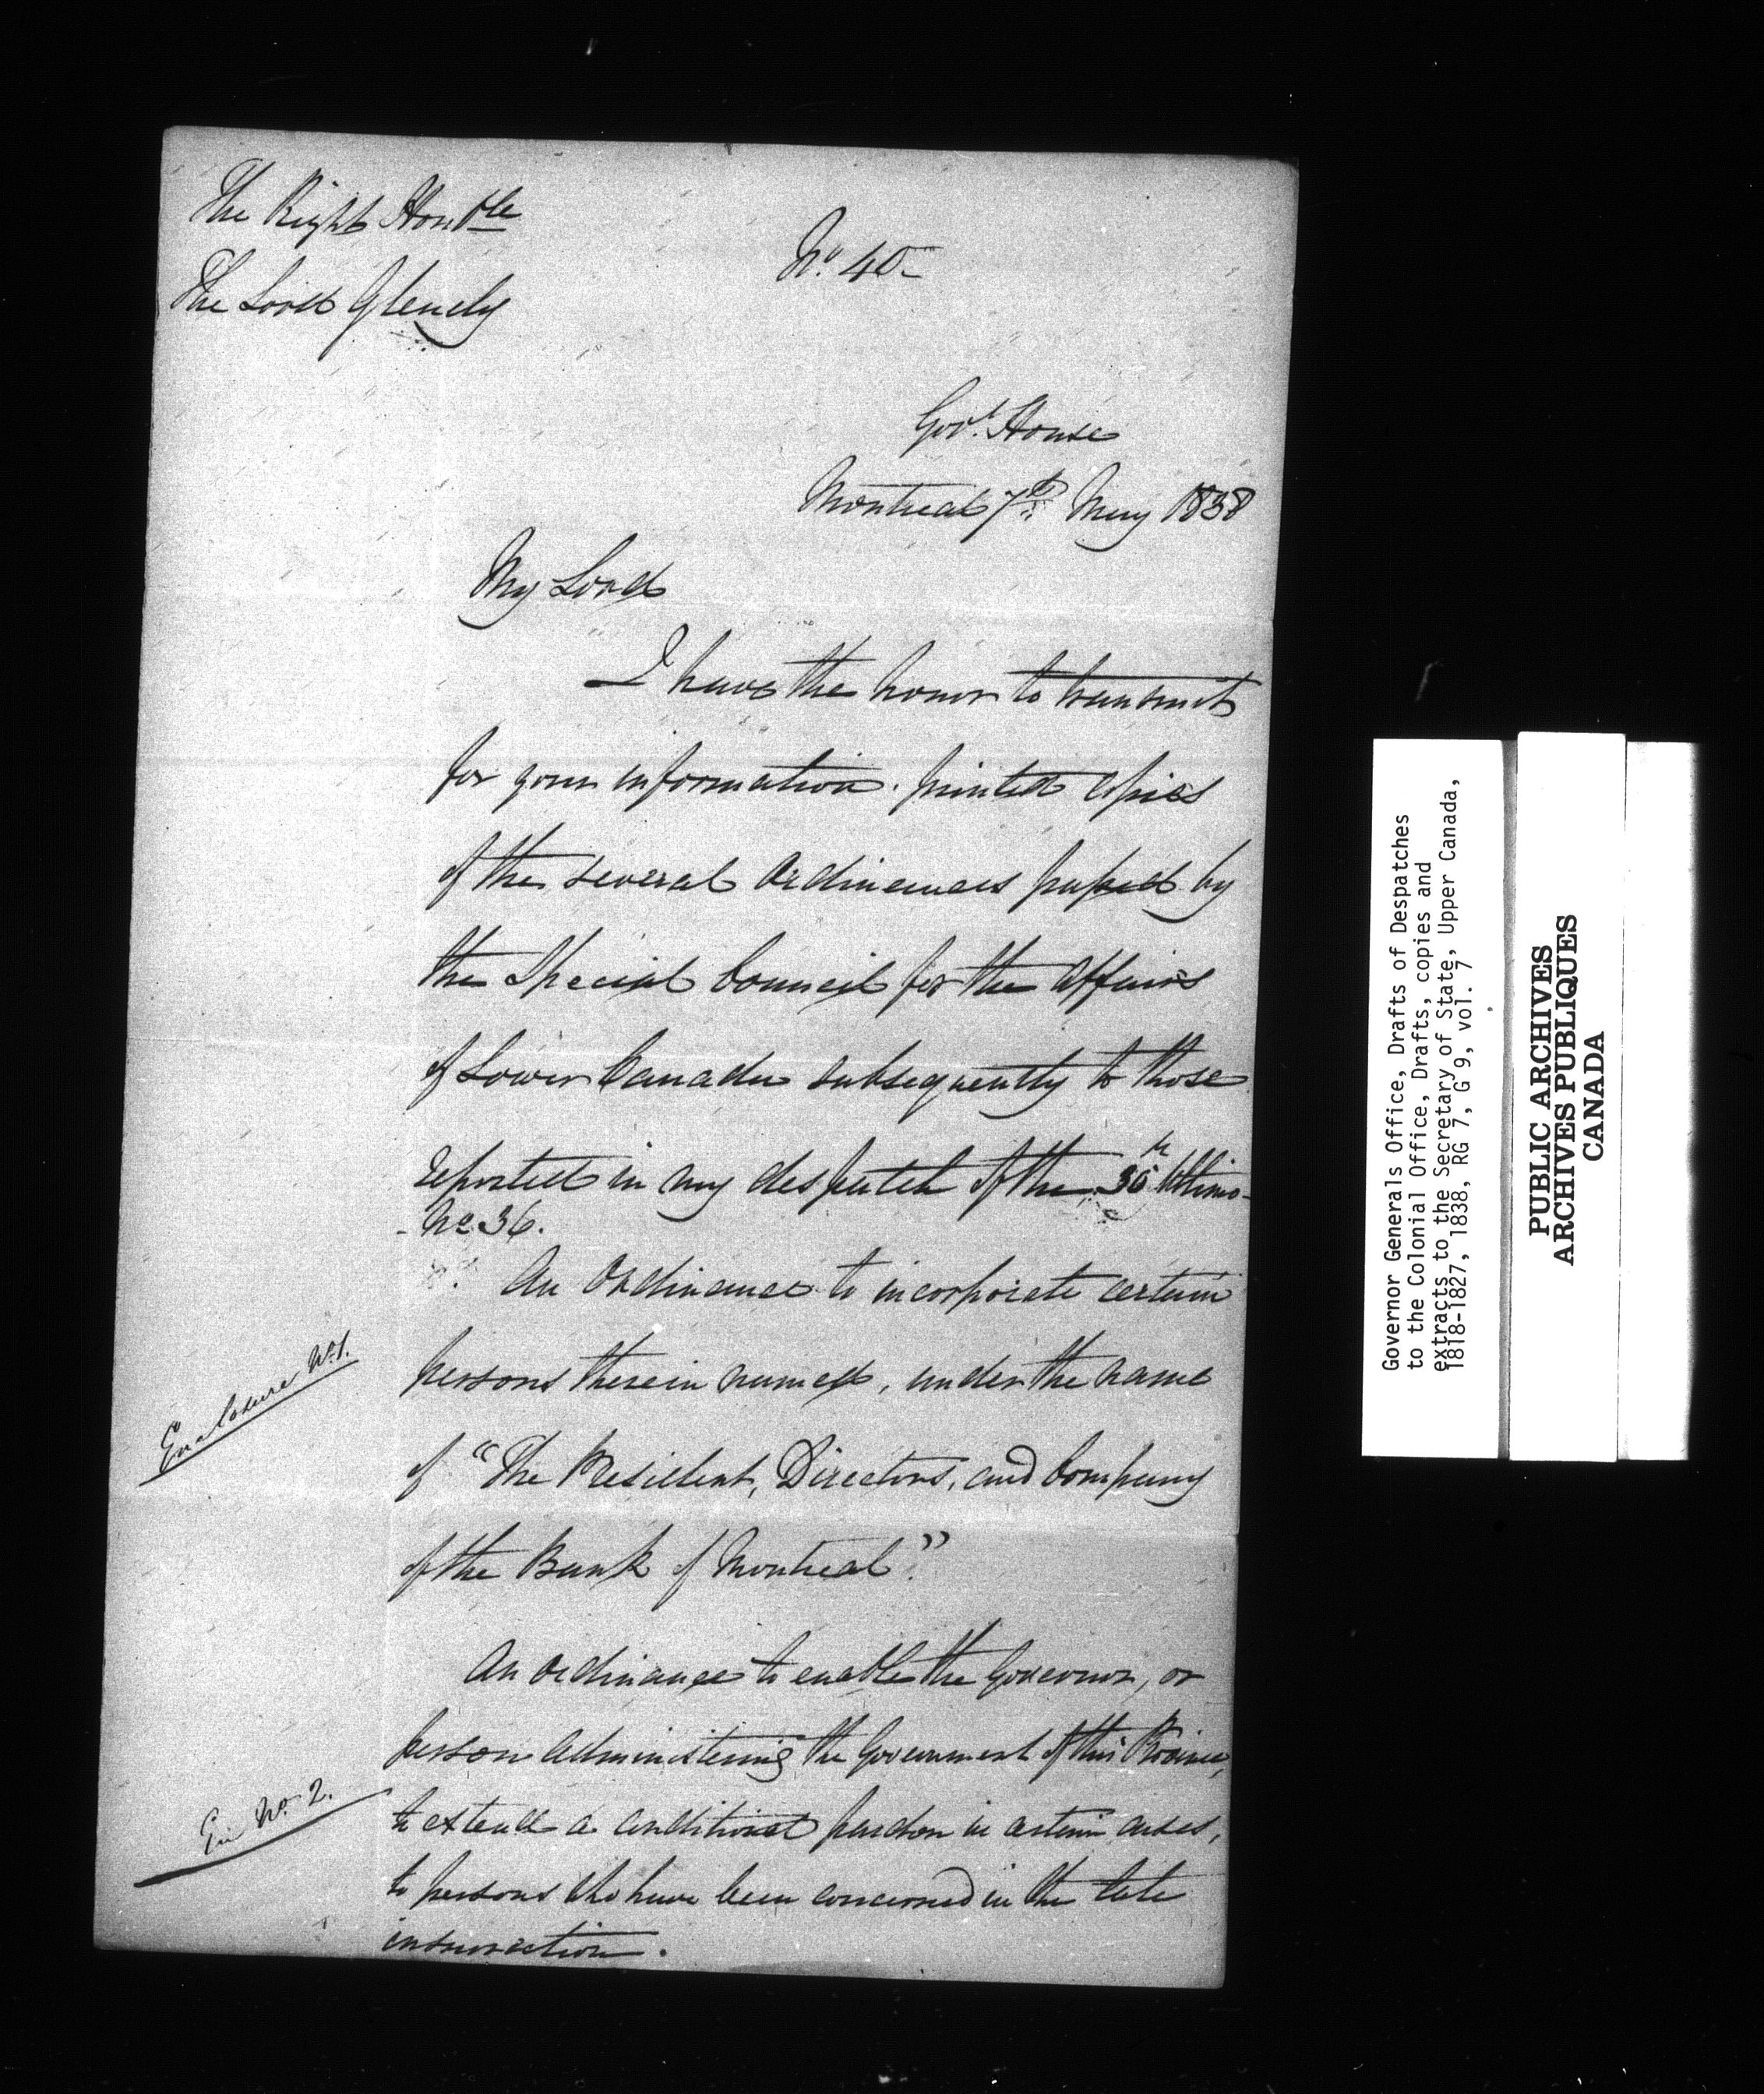 The Right Honble
The Lord Glenelg
No. 40
Govt. House
Montreal 7th May 1838
My Lord
I have the honor to transmit
for your information printed copies
of the several Ordinances passed by
the Special Council for the affairs
of Lower Canada subsequently to those
reported in my despatch of the 30th Ultimo
No 36.
An Ordinance to incorporate certain
persons therein named, under the name
of "The President, Directors, and Company
of the Bank of Montreal".
Enclosure No. 1.
An Ordinance to enable the Governor, or
person administering the Government of this Province,
to extend a conditional pardon in certain cases,
to persons who have been concerned in the late
insurrection.
En No. 2.
Governor Generals Office, Drafts of Despatches
to the Colonial Office, Drafts, copies and
extracts to the Secretary of State, Upper Canada,
1818-1827, 1838, RG 7, G 9, vol. 7
PUBLIC ARCHIVES
ARCHIVES PUBLIQUES
CANADA